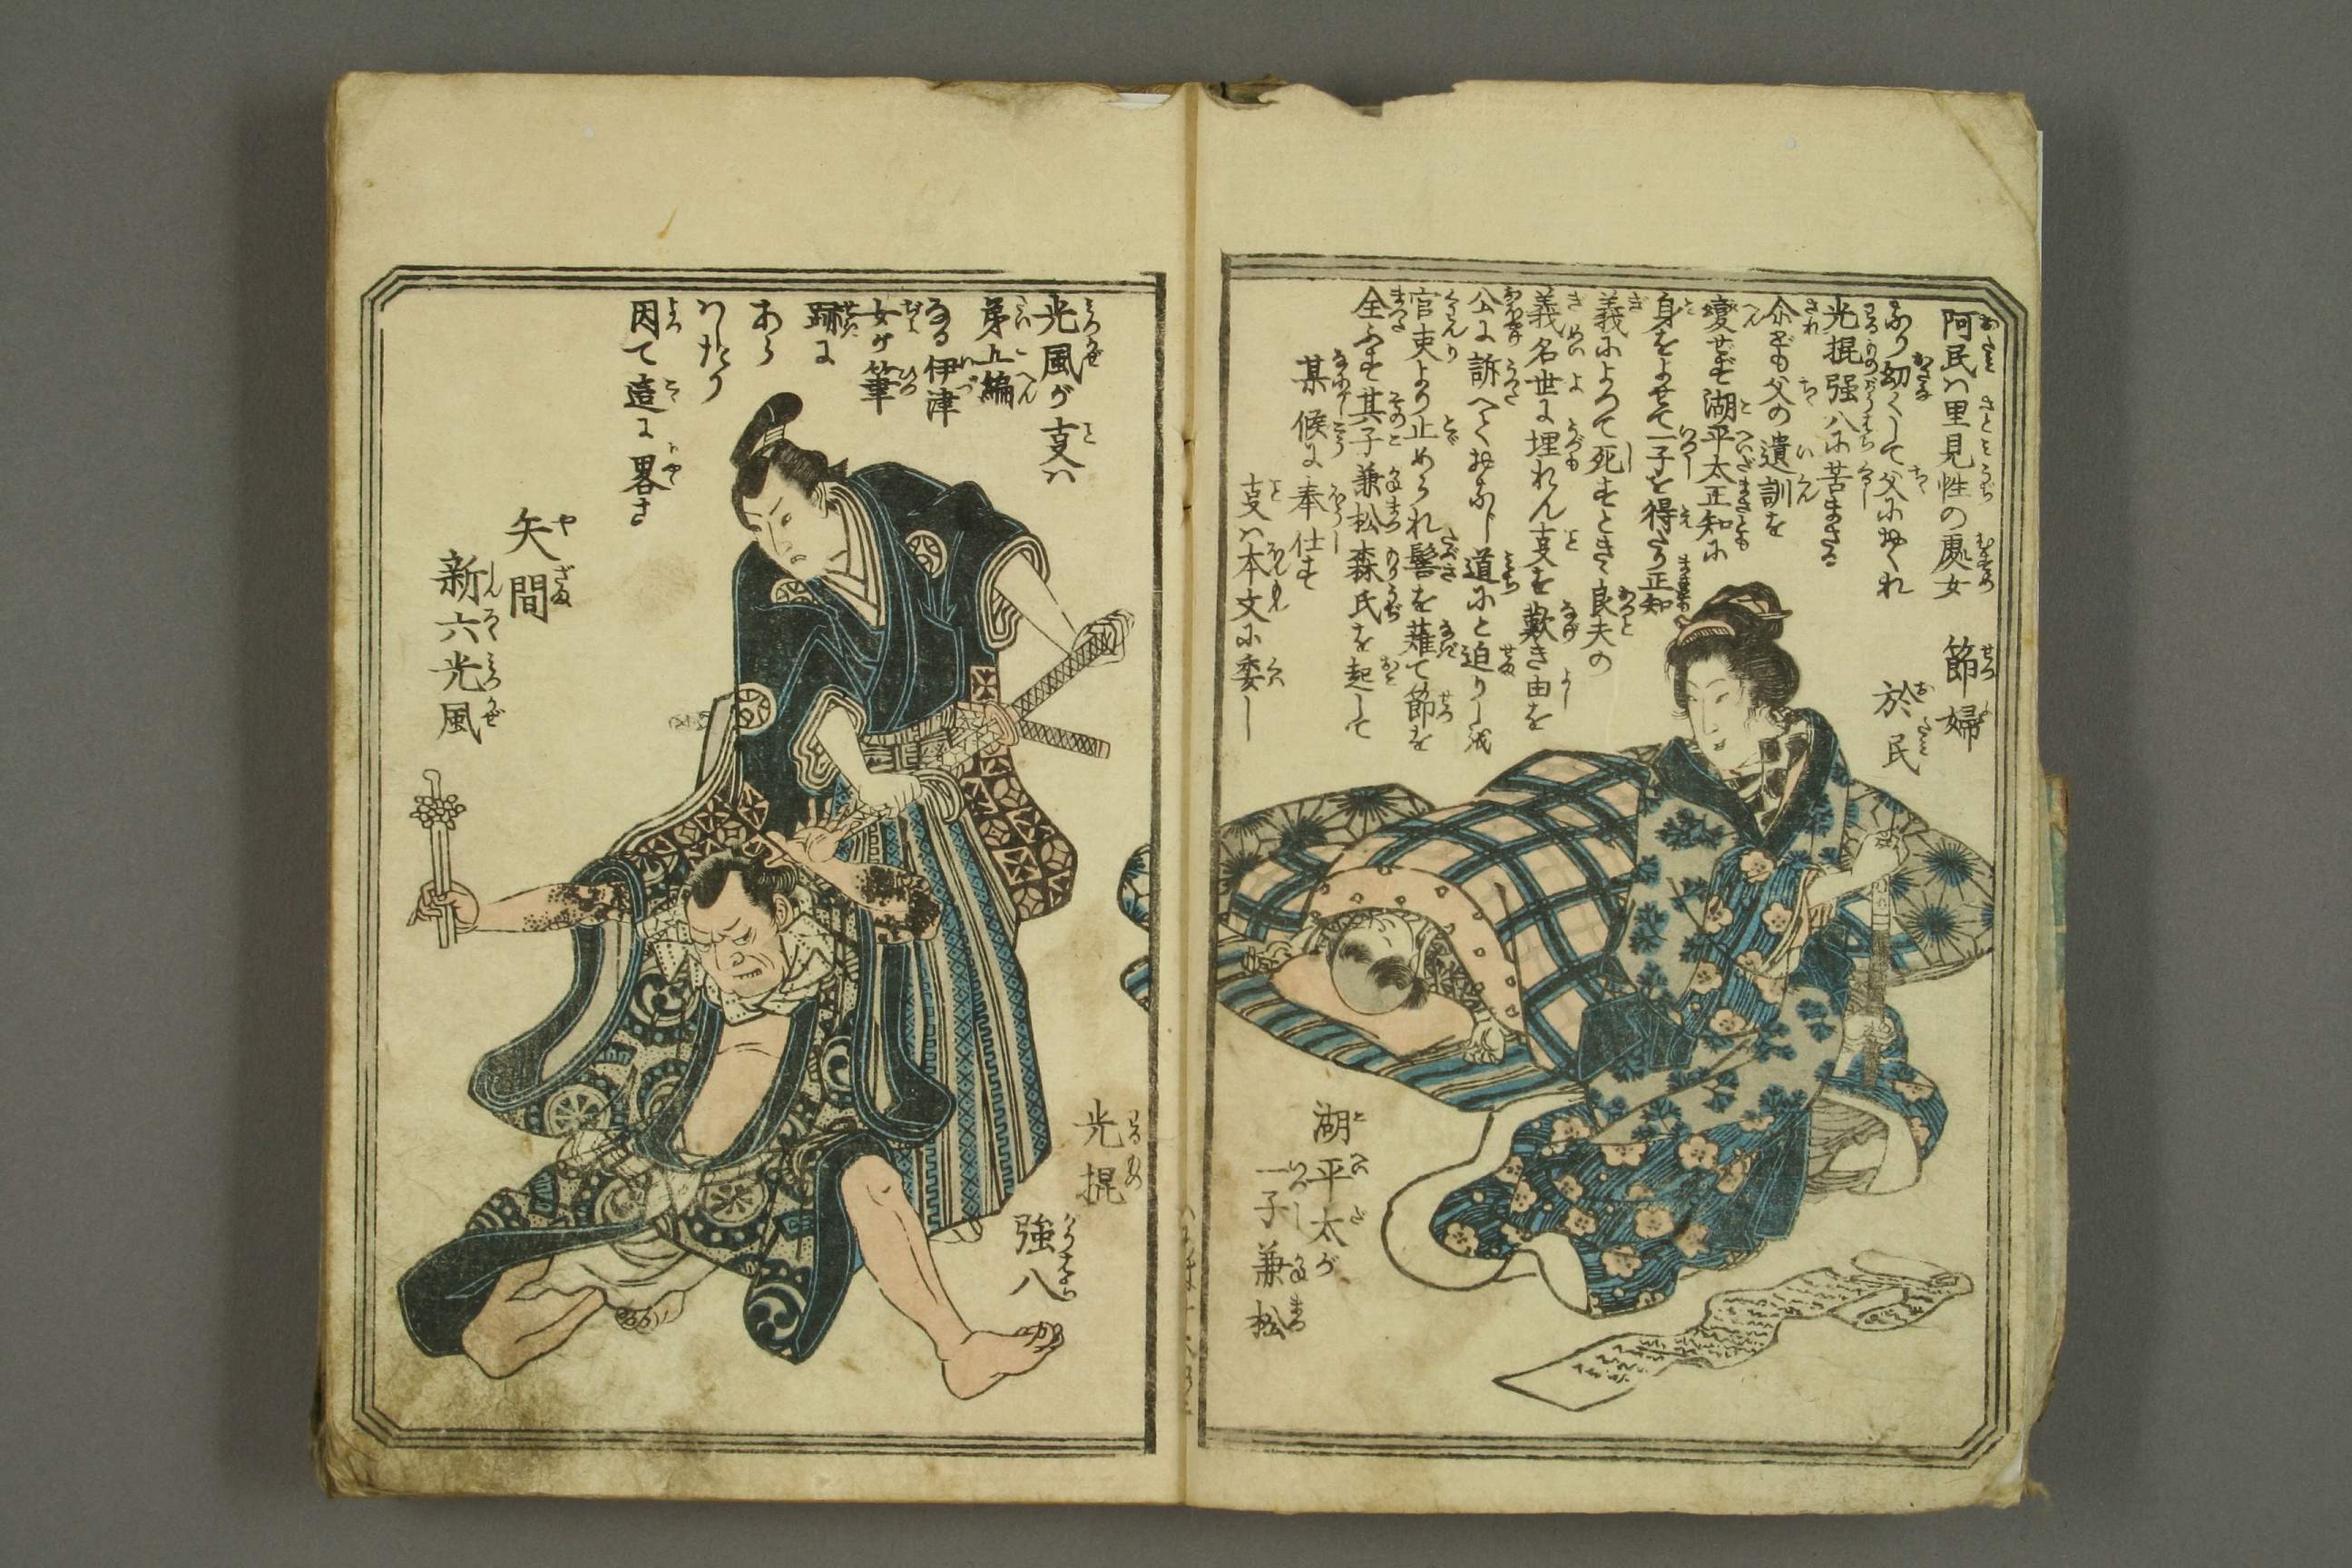 節婦
於民
阿民ハ里見性の處女
ふり幼くして父におくれ
光掍強八に苦まさる
介ども父の遺訓を
變ぜず湖平太正知に
身をよせて一子を得たり正知
義によつて死すときゝ良夫の
義名世に埋れん支を歎き由を
公に訴へて
道に
迫りし
官吏より止められ髻を薙て節を
全ふす其子兼松森氏を起して
某候に奉仕す
支ハ本文に委し
湖平太が
一子兼松
光風が支ハ
第五編
なる伊津
女が筆
跡に
あら
はしたり
因て造に畧す
矢間
新六光風
光掍
強八